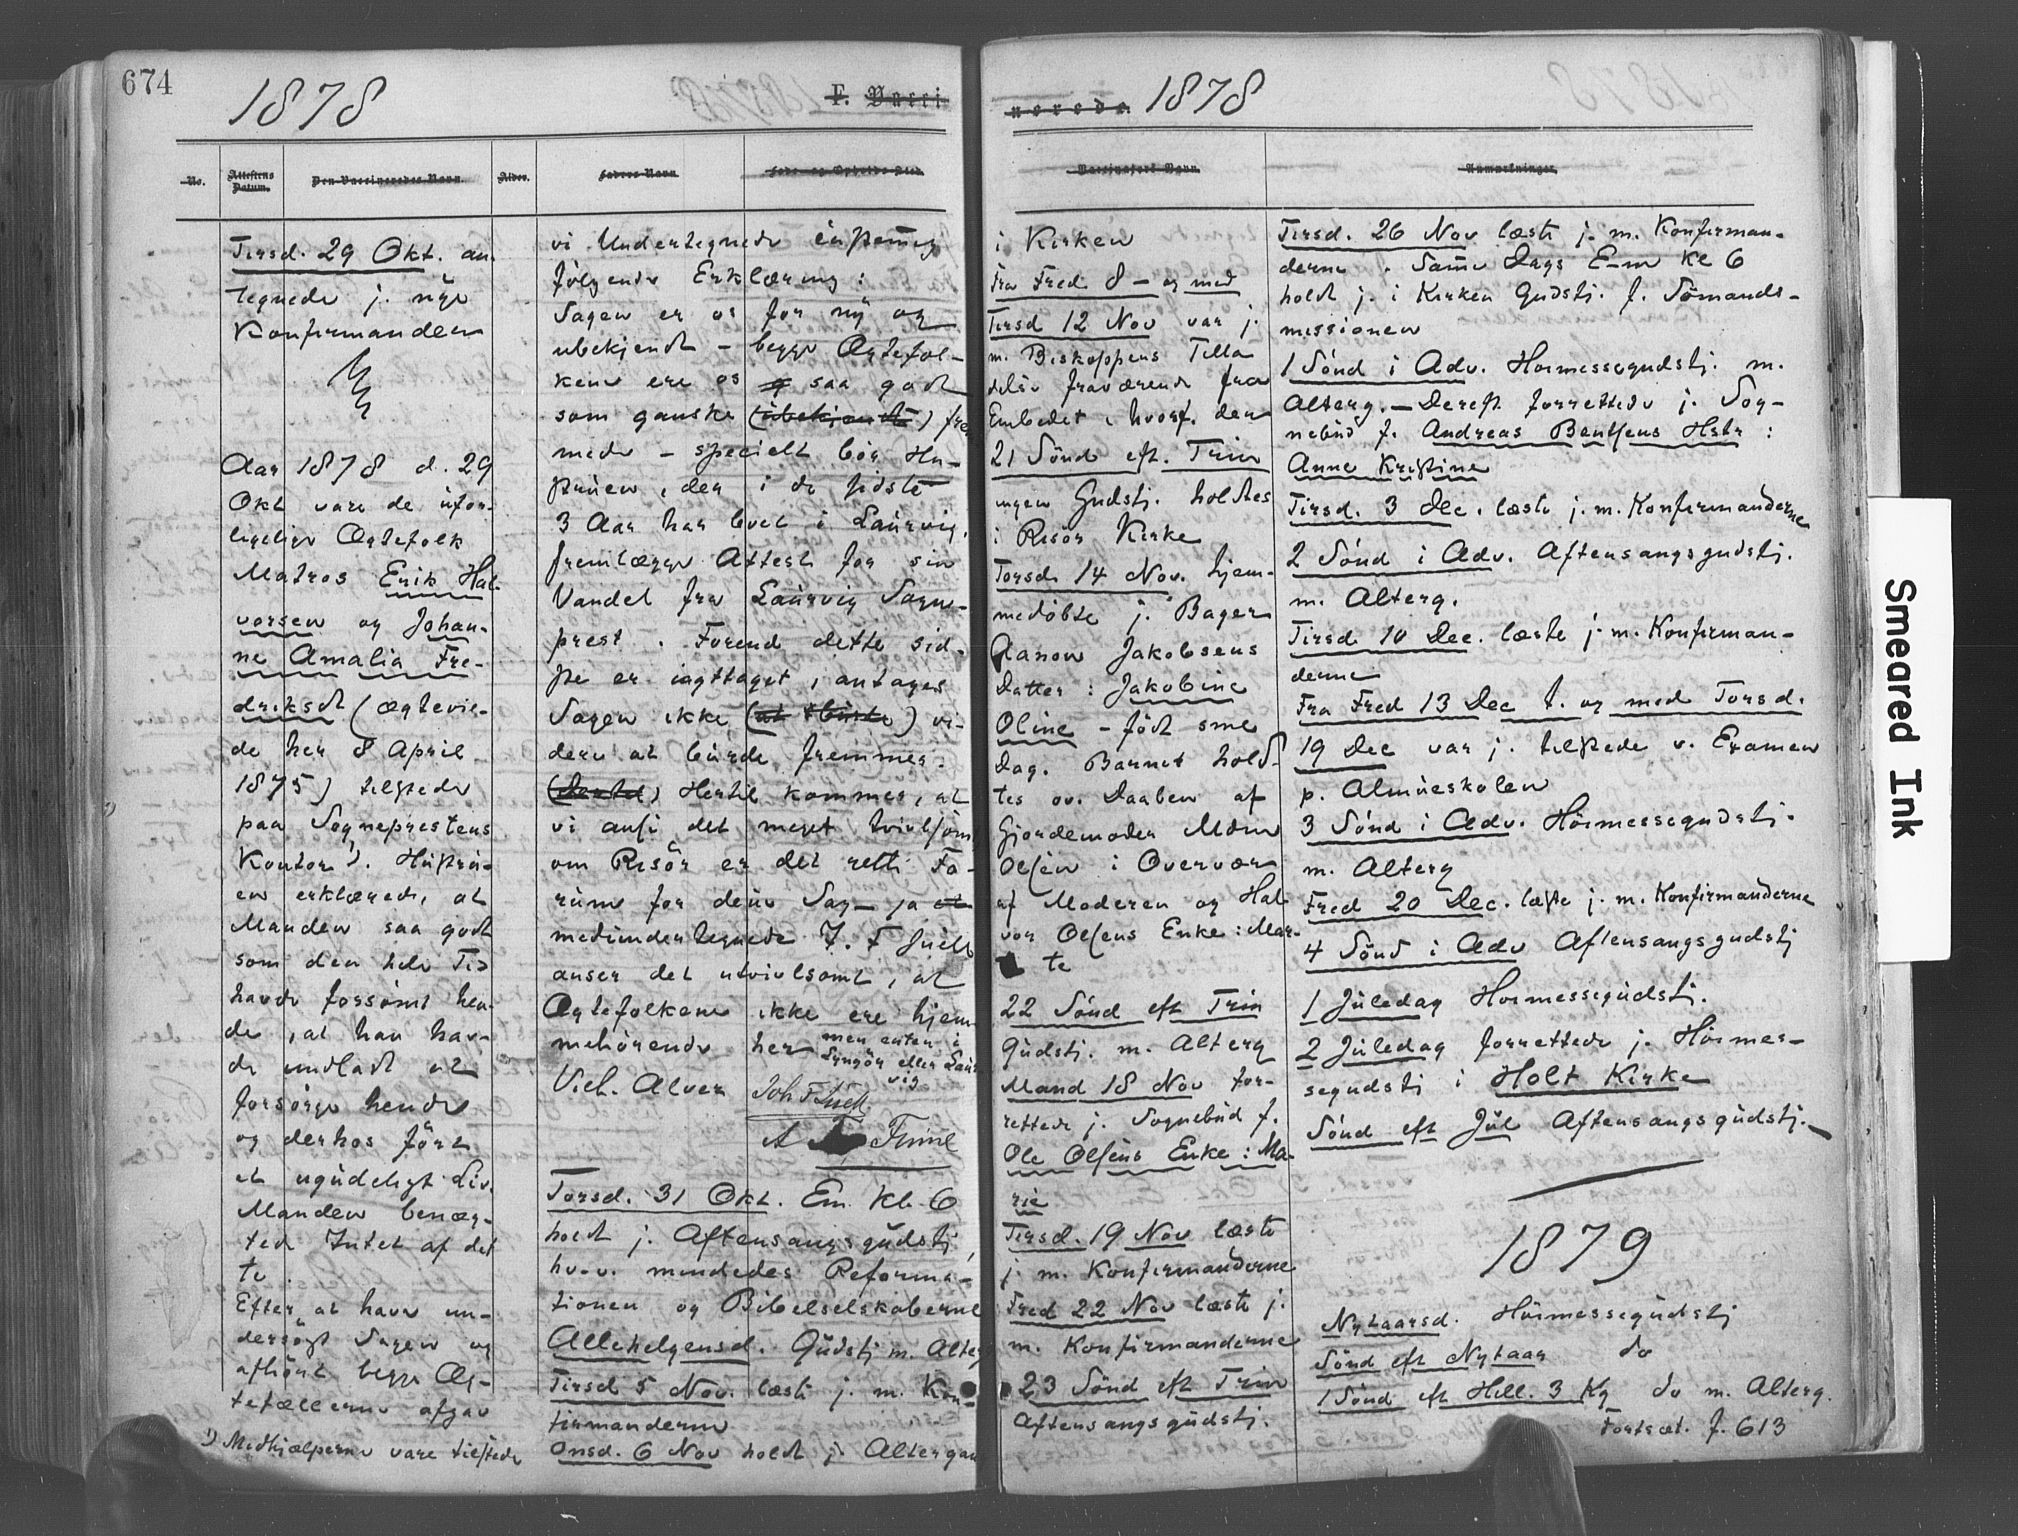 674
1878
F. Vacci
No.
Attestens Datum.
Den Vaccineredes Navn.
Alder.
Faders Navn.
Føde- og Opholds-Sted.
Tirsd. 29 Okt. an-
tegnede j. nye
Konfirmander
Aar 1878 d. 29
Okt vare de ufor-
ligelige Ægtefolk
Matros Erik Hal-
vorsen og Johan-
ne Amalia Fre-
driksdt (ægtevie-
de her 8 April
1875) tilstede
paa Sogneprestens
Kontor 1). Hustru-
en erklærede, at
Manden saa godt
som den hele Tid
havde forsømt hen-
de, at han hav-
de undladt at
forsørge hende
og derhos ført
et ugudeligt Liv.
Manden benæg-
ted Intet af det
te.
Efter at have un-
dersøgt Sagen og
afhørt begge Æg-
tefællerne afgav
1) Medhjælperne vare tilstede
vi Undertegnede eenstemmig
følgende Erklæring:
Sagen er os for ny og
ubekjendt – begge Ægtefol-
kene ere os saa godt
som ganske (ubekjendte) frem
mede – specielt bør Hu-
struen, der i de sidste
3 Aar har levet i Laurvig,
fremlægge Attest for sin
Vandel fra Laurvig Sogne-
prest. Forend dette sid-
ste er iagttaget, antages
Sagen ikke vi-
dere at burde fremmes.
(Dertil) Hertil kommer, at
vi anse det meget tvivlsom
om Risør er det rette Fo-
rum for denne Sag – ja
medundertegnede J. F Juell
anser det utvivlsomt, at
Ægtefolkene ikke ere hjem-
mehørende her men enten i
Lyngør eller Laur
vig
Vilh. Alver Joh F Juell
A Finne
Torsd. 31 Okt. Em. Kl. 6
holdt j. Aftensangsgudstj,
hv. v. mindedes Reforma-
tionen og Bibelselskaberne
Allehelgensd. Gudstj m. Alterg
Tirsd 5 Nov. læste j. m. Kon-
firmanderne
Onsd. 6 Nov holdt j. Altergan
nerede. 1878
Vaccinørens Navn
Anmærkninger
i Kirken
Fra Fred 8 – og med
Tirsd 12 Nov var j.
m. Biskoppens Tilla
delse fraværende fra
Embedet, hvorf. den
21 Sønd eft. Trin
ingen Gudstj. holdtes
i Risør Kirke
Torsd. 14 Nov. hjem-
medøbte j. Bager
Aanon Jakobsens
Datter: Jakobine
Oline – født sme
Dag. Barnet hold-
tes ov. Daaben af
Gjordemoder Mdm
Olsen i Overvær
af Moderen og Hal
vor Olsens Enke: Mar-
te
22 Sønd eft Trin
Gudstj. m. Alterg
Mand 18 Nov for-
rettede j. Sognebud f.
Ole Olsens Enke: Ma-
rie
Tirsd. 19 Nov læste
j. m. Konfirmanderne
Fred 22 Nov læste j.
m. Konfirmanderne
23 Sønd eft Trin
Aftensangsgudstj.
Tirsd. 26 Nov læste j. m. Konfirman-
derne. Samme Dags E-m Kl 6
holdt j. i Kirken Gudstj. f. Sømands-
missionen
1 Sønd i Adv. Høimessegudstj. m.
Alterg. – Dereft forrettede j. Sog-
nebud f. Andreas Bentsens Hstr:
Anne Kristine
Tirsd. 3 Dec. læste j. m. Konfirmanderne
2 Sønd i Adv. Aftensangsgudstj.
m. Alterg.
Tirsd 10 Dec. læste j. m. Konfirman-
derne
Fra Fred 13 Dec t. og med Torsd.
19 Dec var j. tilstede v. Examen
p. Almueskolen
3 Sønd i Adv. Høimessegudstj.
m. Alterg
Fred 20 Dec. læste j. m. Konfirmanderne
4 Sønd i Adv Aftensangsgudstj
1 Juledag Høimessegudstj.
2 Juledag forrettede j. Høimes-
segudstj i Holt Kirke
Sønd eft Jul Aftensangsgudstj.
1879
Nytaarsd. Høimessegudstj
Sønd eft Nytaar do
1 Sønd eft Hell. 3 Kg do m. Alterg.
Fortsæt. f. 613
Smeared Ink